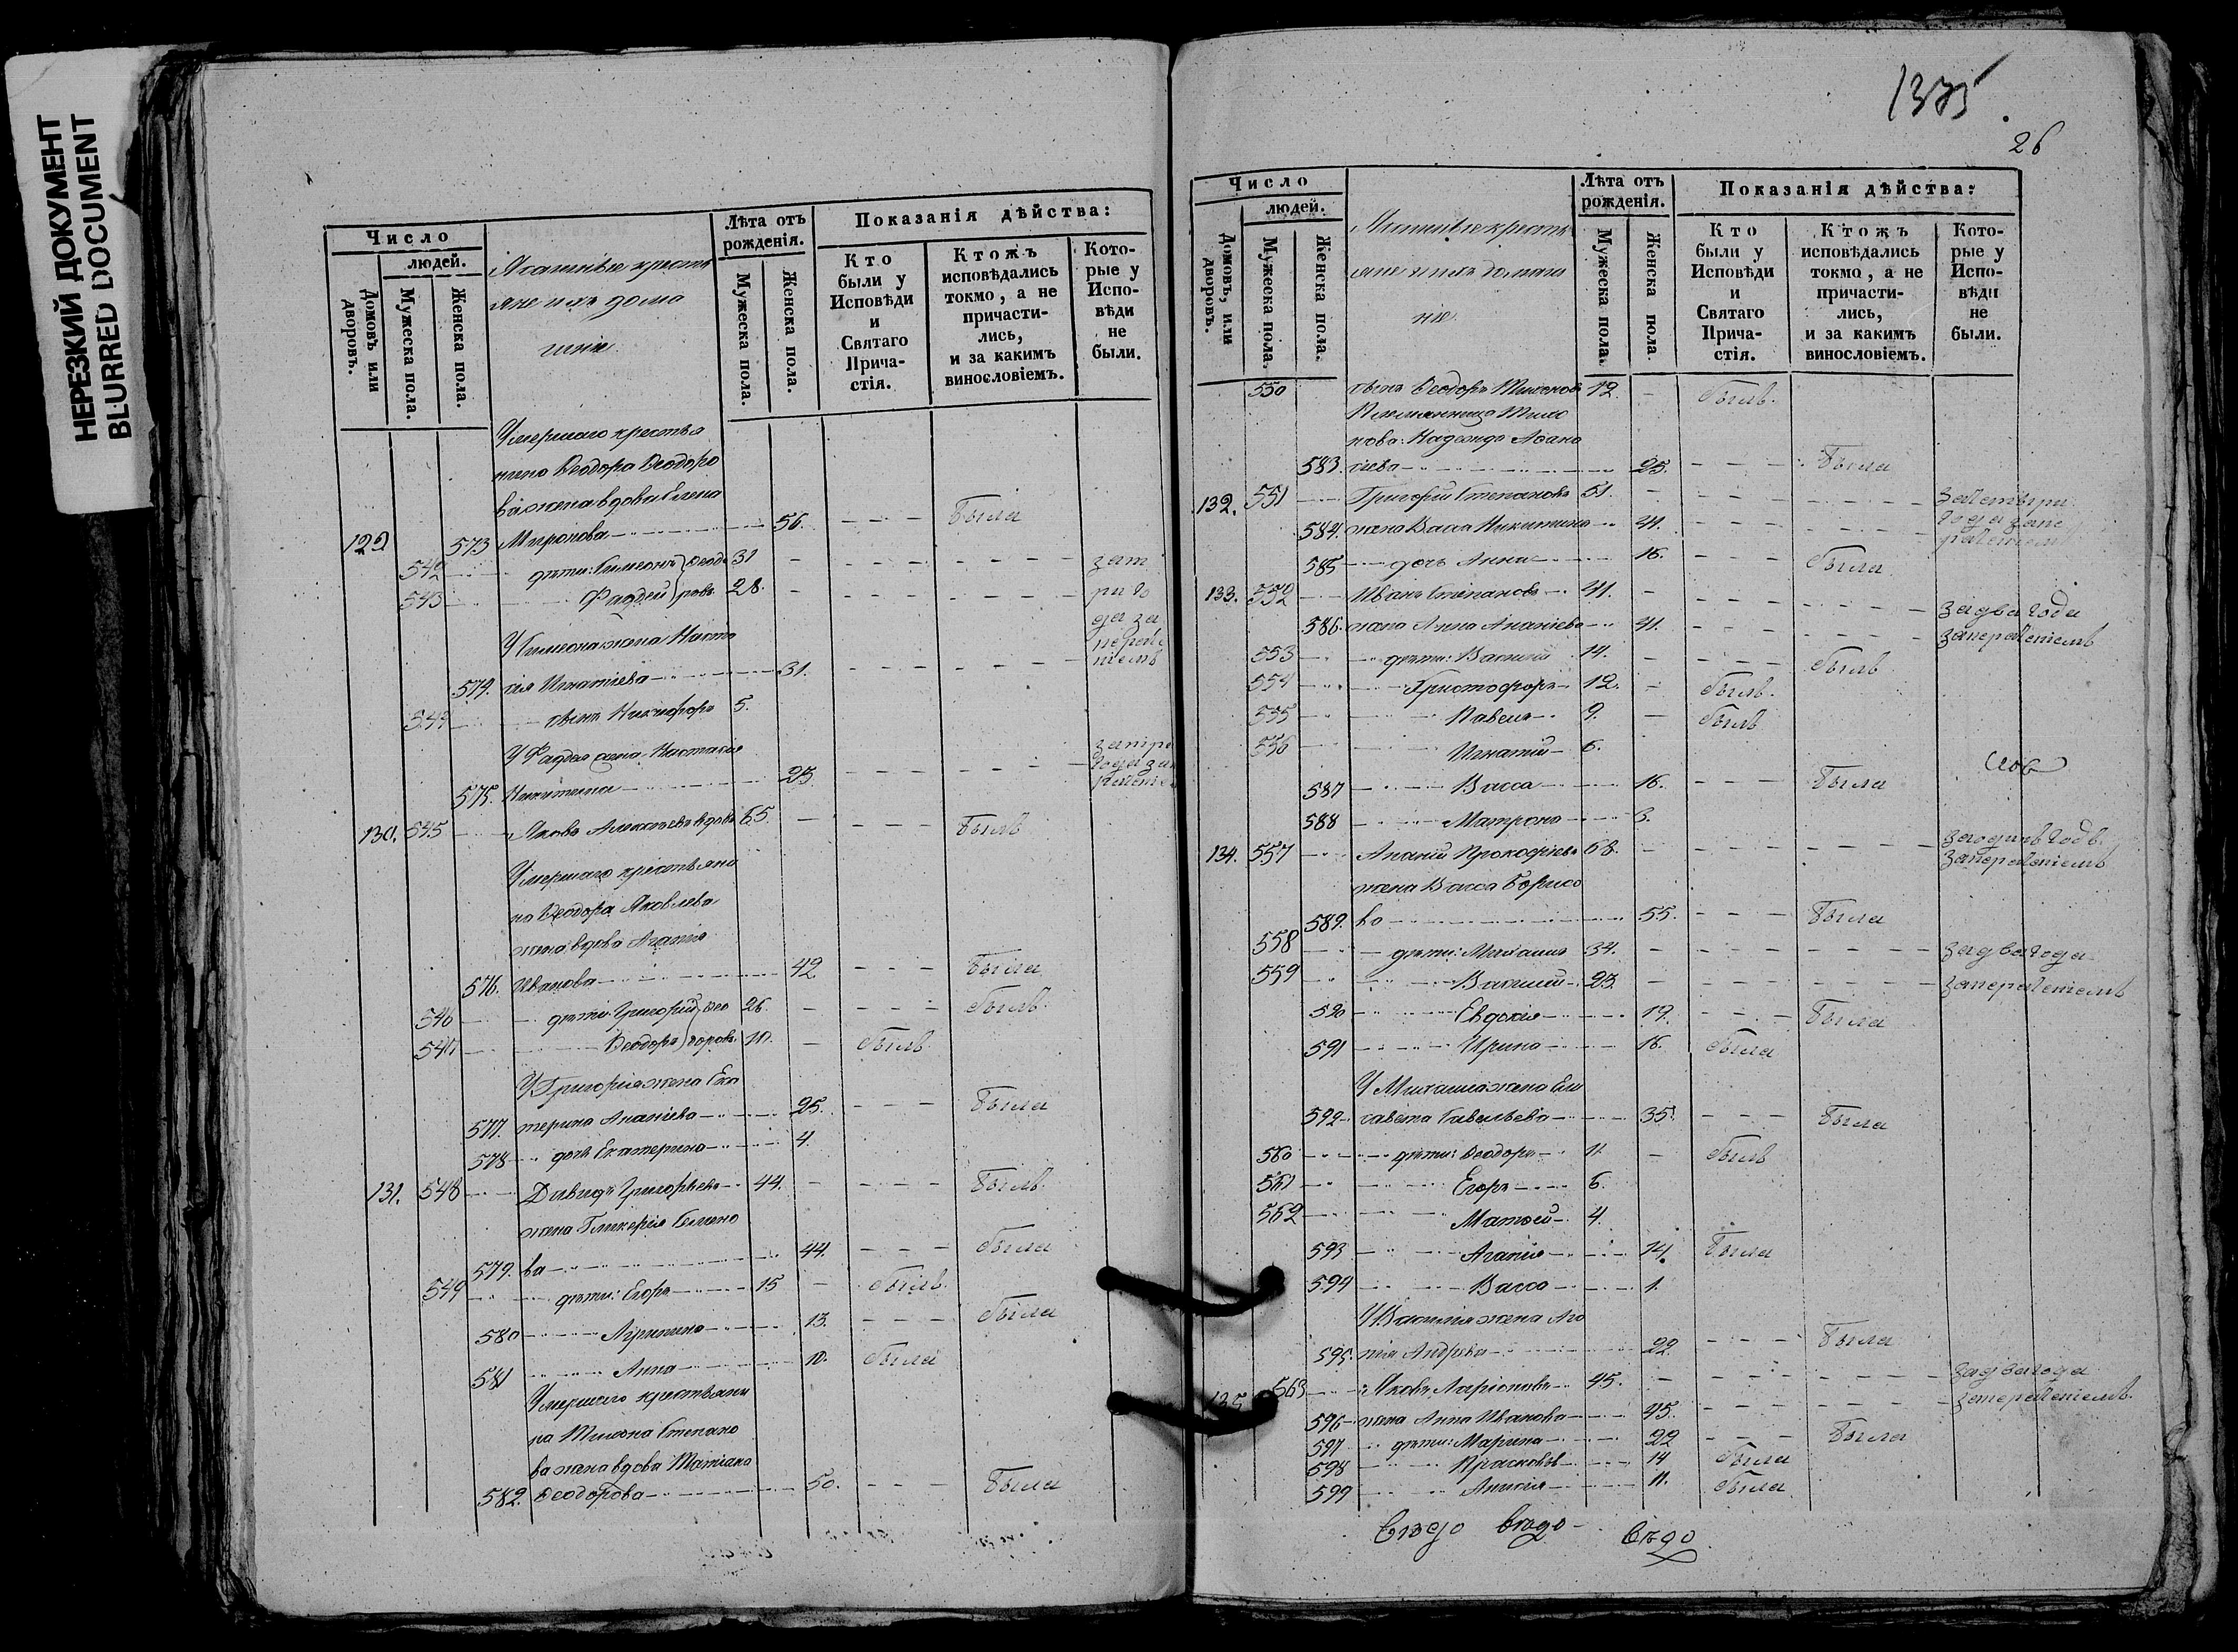 НЕРЕЗКИЙ ДОКУМЕНТ
BLURRED DOCUMENT
Число
людей.
Домовъ или дворовъ.
Мужеска пола.
Женска пола.
яне ихъ дома
Лѣта отъ рожденія.
Мужеска пола.
Женска пола.
Показанія дѣйства:
Кто были у Исповѣди и Святаго Причастія.
Ктожъ исповѣдались токмо, а не причастились, и за какимъ винословіемъ.
Которые у Исповѣди не были.
Умершаго крестья
нина Ѳеодора Ѳеодоро
ва жена вдова Елена
129 573 Миронова 56. Была
542 дѣти: Симеонъ Ѳеодо 31
543 Фаддей ровы 28.
У Симеона жена Наста
574. сія Игнатіева 31.
544 сынъ Никифоръ 5.
У Фаддея жена Настасія
575. Никитина 25.
130. 545 Яковъ Алексѣевъ вдовъ 65. Былъ
Умершаго крестьяни
на Ѳеодора Яковлева
жена вдова Агапія
576. Иванова 42 Была
546 дѣти: Григорій Ѳео 26. Былъ
547 Ѳеодоръ доровы 10. Былъ
У Григорія жена Ека
577. терина Ананіева 25. Была
578 дочь Екатерина 4.
131. 548 Давидъ Григорьевъ 44. Былъ
жена Гликерія Семено
579. ва 44. Была
549 дѣти: Егоръ 15 Былъ
580 Агрипина 13. Была
581 Анна 10. Была
Умершаго крестьяни
на Тихона Степано
ва жена вдова Татіана
582. Ѳеодорова 50. Была
1335
26
Число
людей.
Домовъ, или дворовъ.
Мужеска пола.
Женска пола.
яне и ихъ домаш
ніе
Лѣта отъ рожденія.
Мужеска пола.
Женска пола.
Показанія дѣйства:
Кто были у Исповѣди и Святаго Причастія.
Ктожъ исповѣдались токмо, а не причастились, и за какимъ винословіемъ.
Которые у Исповѣди не были.
550 сынъ Ѳеодоръ Тихоновъ 12. Былъ.
Племянница Тихо
нова: Надежда Аѳана
583. сіева 25. Была
132. 551 Григорій Степановъ 51.
584. жена Васса Никитина 41.
585 дочь Анна 16. Была
133. 552 Иванъ Степановъ 41. за два года
586. жена Анна Ананіева 41. запераченіемъ
553 дѣти: Василій 14. Былъ
554 Христофоръ 12. Былъ.
555 Павелъ 9. Былъ
556 Игнатій 6.
587 Васса 16. Была
588 Матрона 3.
134. 557 Ананій Прокофіевъ 68. заодинъ годъ.
запераченіемъ
жена Васса Борисо
589. ва 55. Была
558 дѣти: Михаилъ 34. за два года
559 Василій 23. запераченіемъ
590 Евдокія 19. Была
591 Ирина 16. Была
У Михаила жена Ели
592 савета Савельева 35. Была
560 дѣти: Ѳеодоръ 11. Былъ
561 Егоръ 6.
562 Матѳей 4.
593 Агапія 14. Была
594 Васса 1.
У Василія жена Ага
595. пія Андреева 22 Была
135 563 Яковъ Ларіоновъ 45. за два года
596 жена Анна Иванова 45. запераченіемъ.
597 дѣти: Марина 22 Была
598 Прасковья 14 Была
599 Анисія 11. Была